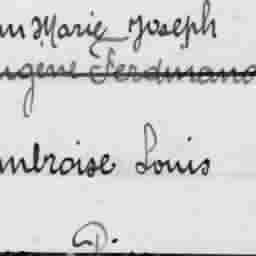 an Marie Joseph
ugène Ferdinand
mbroise Louis